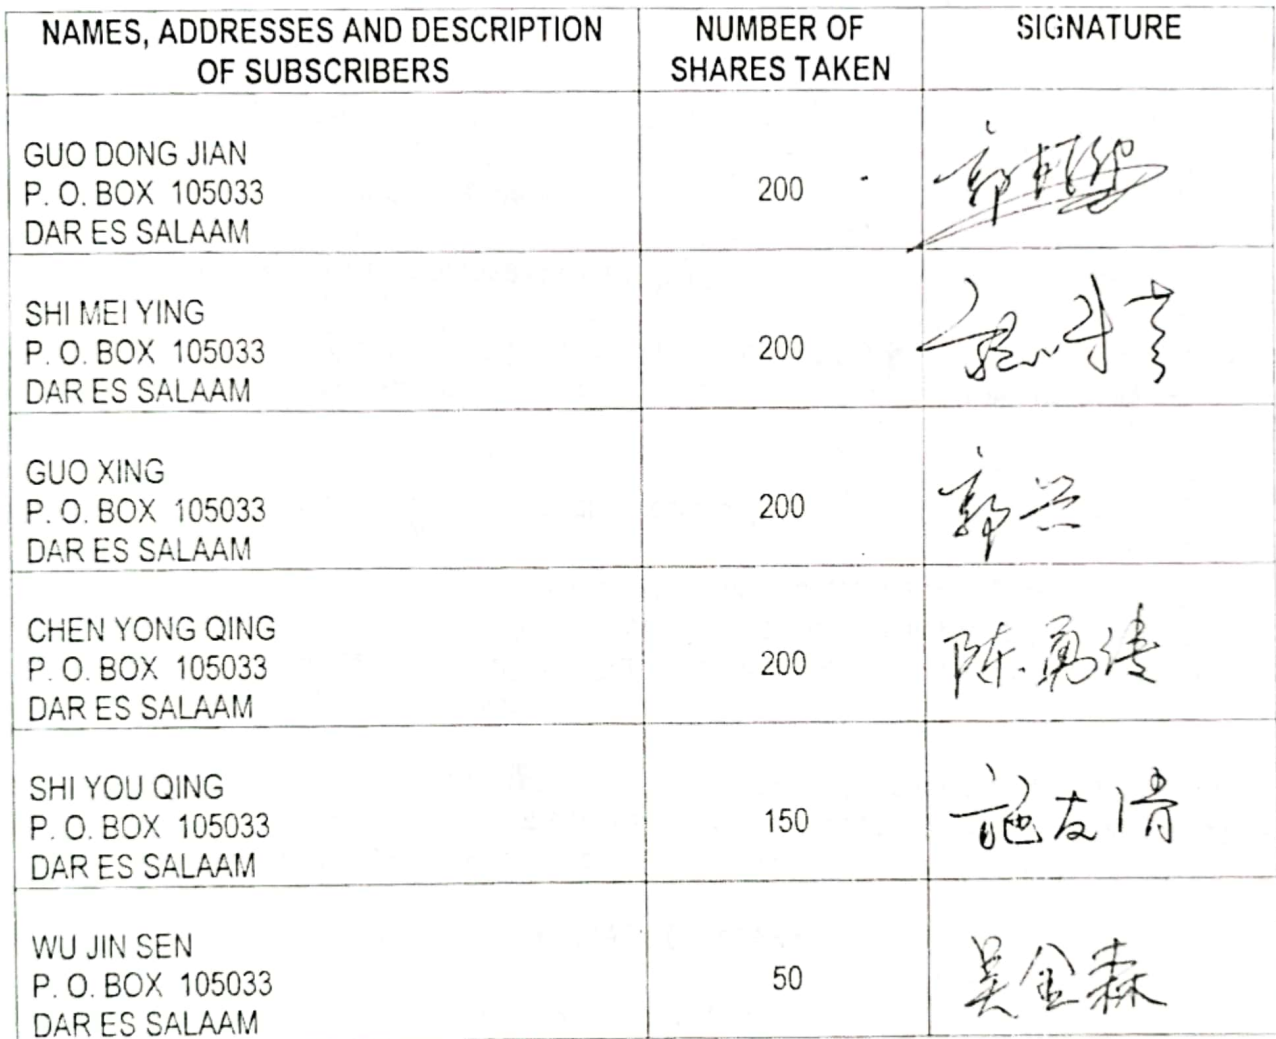 NAMES, ADDRESSES AND DESCRIPTION
OF SUBSCRIBERS
NUMBER OF
SHARES TAKEN
SIGNATURE
GUO DONG JIAN
P. O. BOX 105033
DAR ES SALAAM
200
郭
SHI MEI YING
P. O. BOX 105033
DAR ES SALAAM
200
GUO XING
P. O. BOX 105033
DAR ES SALAAM
200
郭兴
CHEN YONG QING
P. O. BOX 105033
DAR ES SALAAM
200
陈勇清
SHI YOU QING
P. O. BOX 105033
DAR ES SALAAM
150
施友清
WU JIN SEN
P. O. BOX 105033
DAR ES SALAAM
50
吴金森